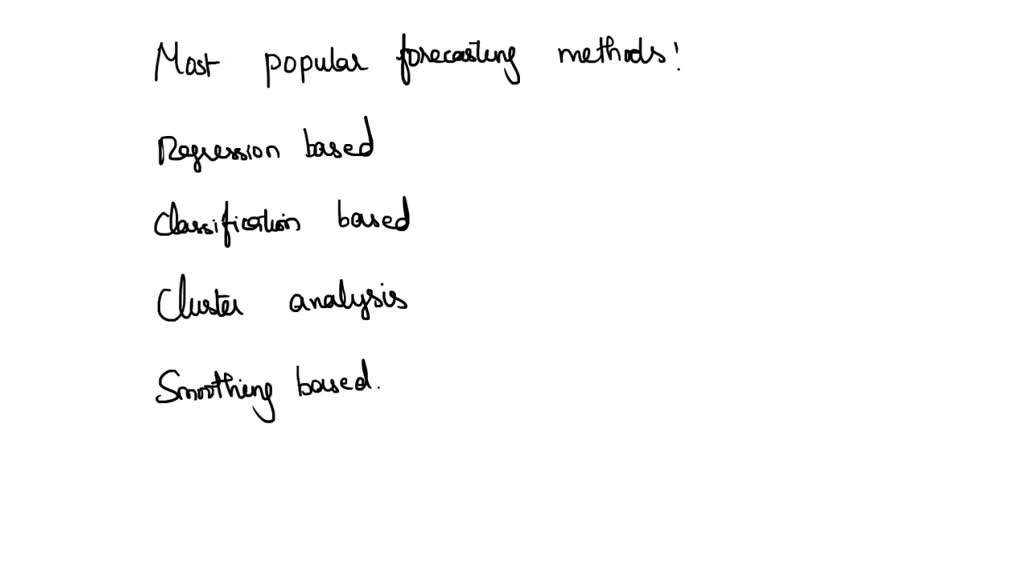 Most popular forecasting methods:
Regression based
Classification based
Cluster analysis
Smoothing based.